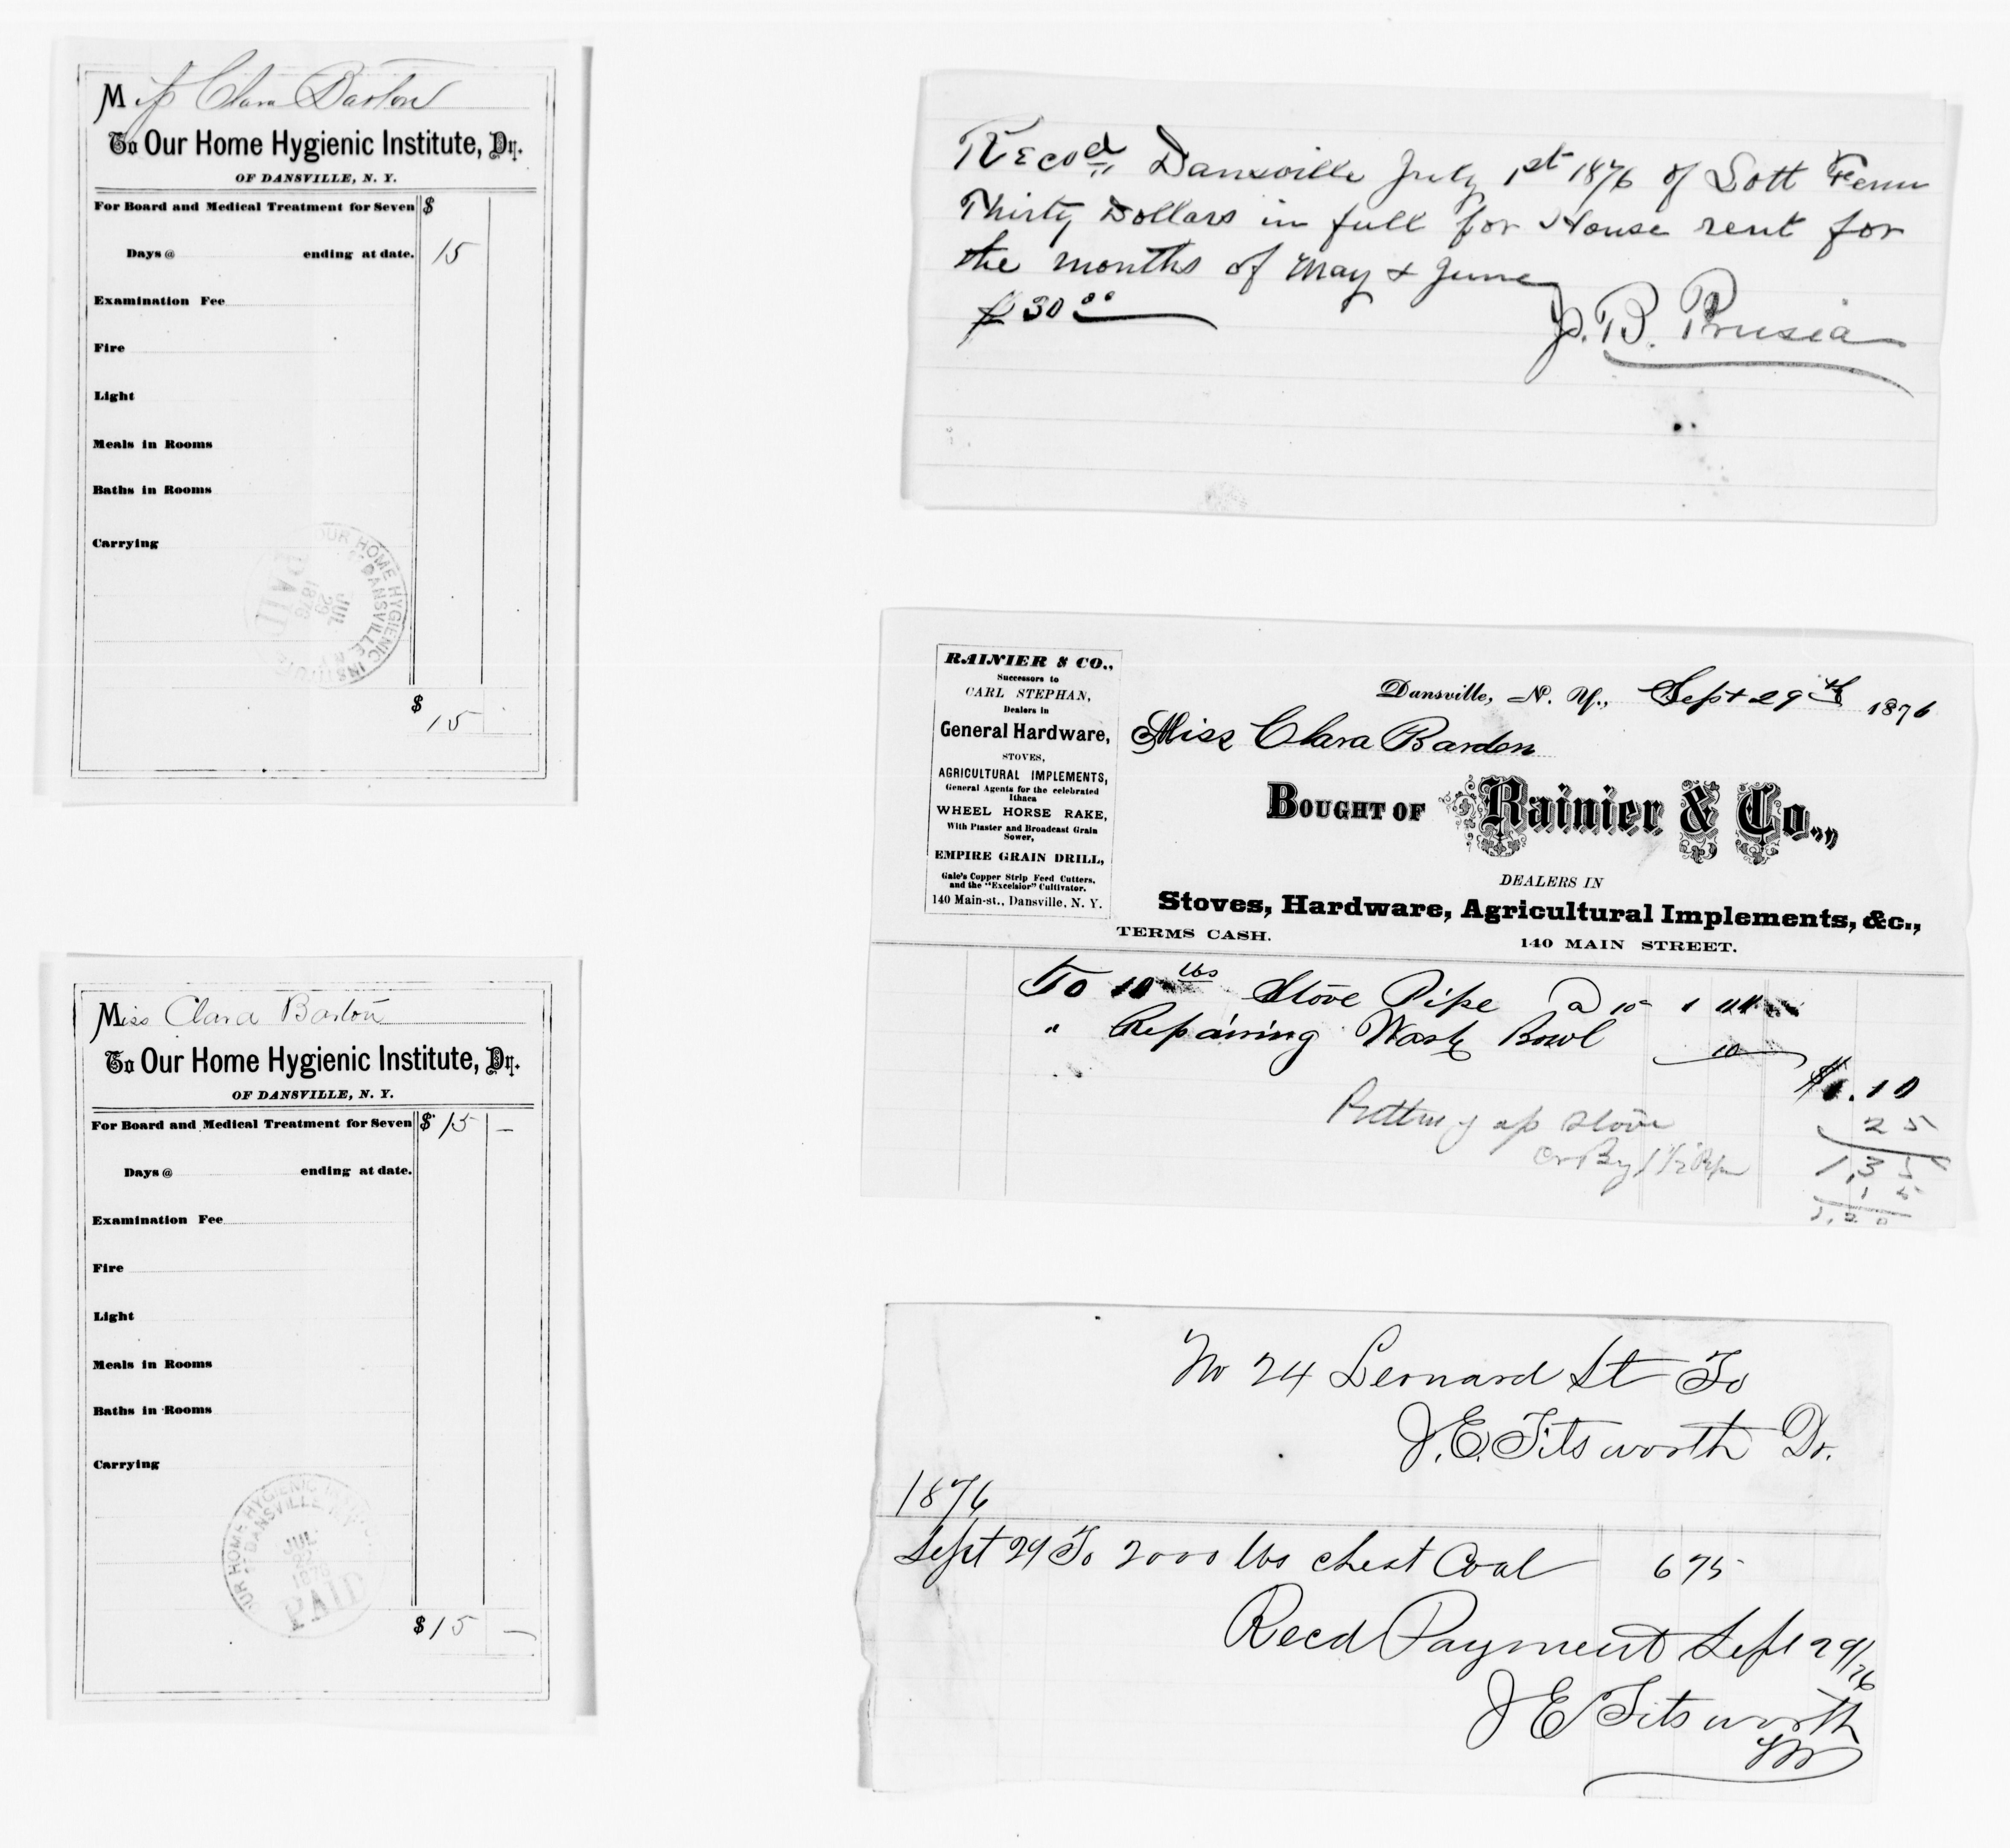 Miss Clara Barton
To Our Home Hygienic Institute, Dr.
OF DANSVILLE, N. Y.
For Board and Medical Treatment for Seven $
Days @ ending at date. 15
Examination Fee
Fire
Light
Meals in Rooms
Baths in Rooms
Carrying
OUR HOME HYGIENIC INSTITUTE
DANSVILLE N.Y.
JUL
29
1876
PAID
$ 15
Miss Clara Barton
To Our Home Hygienic Institute, Dr.
OF DANSVILLE, N. Y.
For Board and Medical Treatment for Seven $ 15 —
Days @ ending at date.
Examination Fee
Fire
Light
Meals in Rooms
Baths in Rooms
Carrying
OUR HOME HYGIENIC
DANSVILLE
JUL
PAID
$ 15 —
Recod Dansville July 1st 1876 of Lott Fenn
Thirty Dollars in full for House rent for
the months of May & June
$30 00
B. Prusia
RAINIER & CO.,
Successors to
CARL STEPHAN,
Dealers in
General Hardware,
STOVES,
AGRICULTURAL IMPLEMENTS,
General Agents for the celebrated
Ithaca
WHEEL HORSE RAKE,
With Plaster and Broadcast Grain
Sower,
EMPIRE GRAIN DRILL,
Gale's Copper Strip Feed Cutters,
and the "Excelsior" Cultivator.
140 Main-st., Dansville, N. Y.
Dansville, N. Y., Sept 29th 1876
Miss Clara Bardon
BOUGHT OF Rainier & Co.,
DEALERS IN
Stoves, Hardware, Agricultural Implements, &c.,
TERMS CASH. 140 MAIN STREET.
To 10 lbs Stove Pipe @ 10 1 00
" Repairing Wash Bowl 10
$1.10
Putting up stove 25
1,35
15
1,20
No 24 Leonard St To
J. E. Titsworth Dr.
1876
Sept 29 To 2000 lbs chest Coal 675
Recd Payment Sept 29/76
J E Titsworth